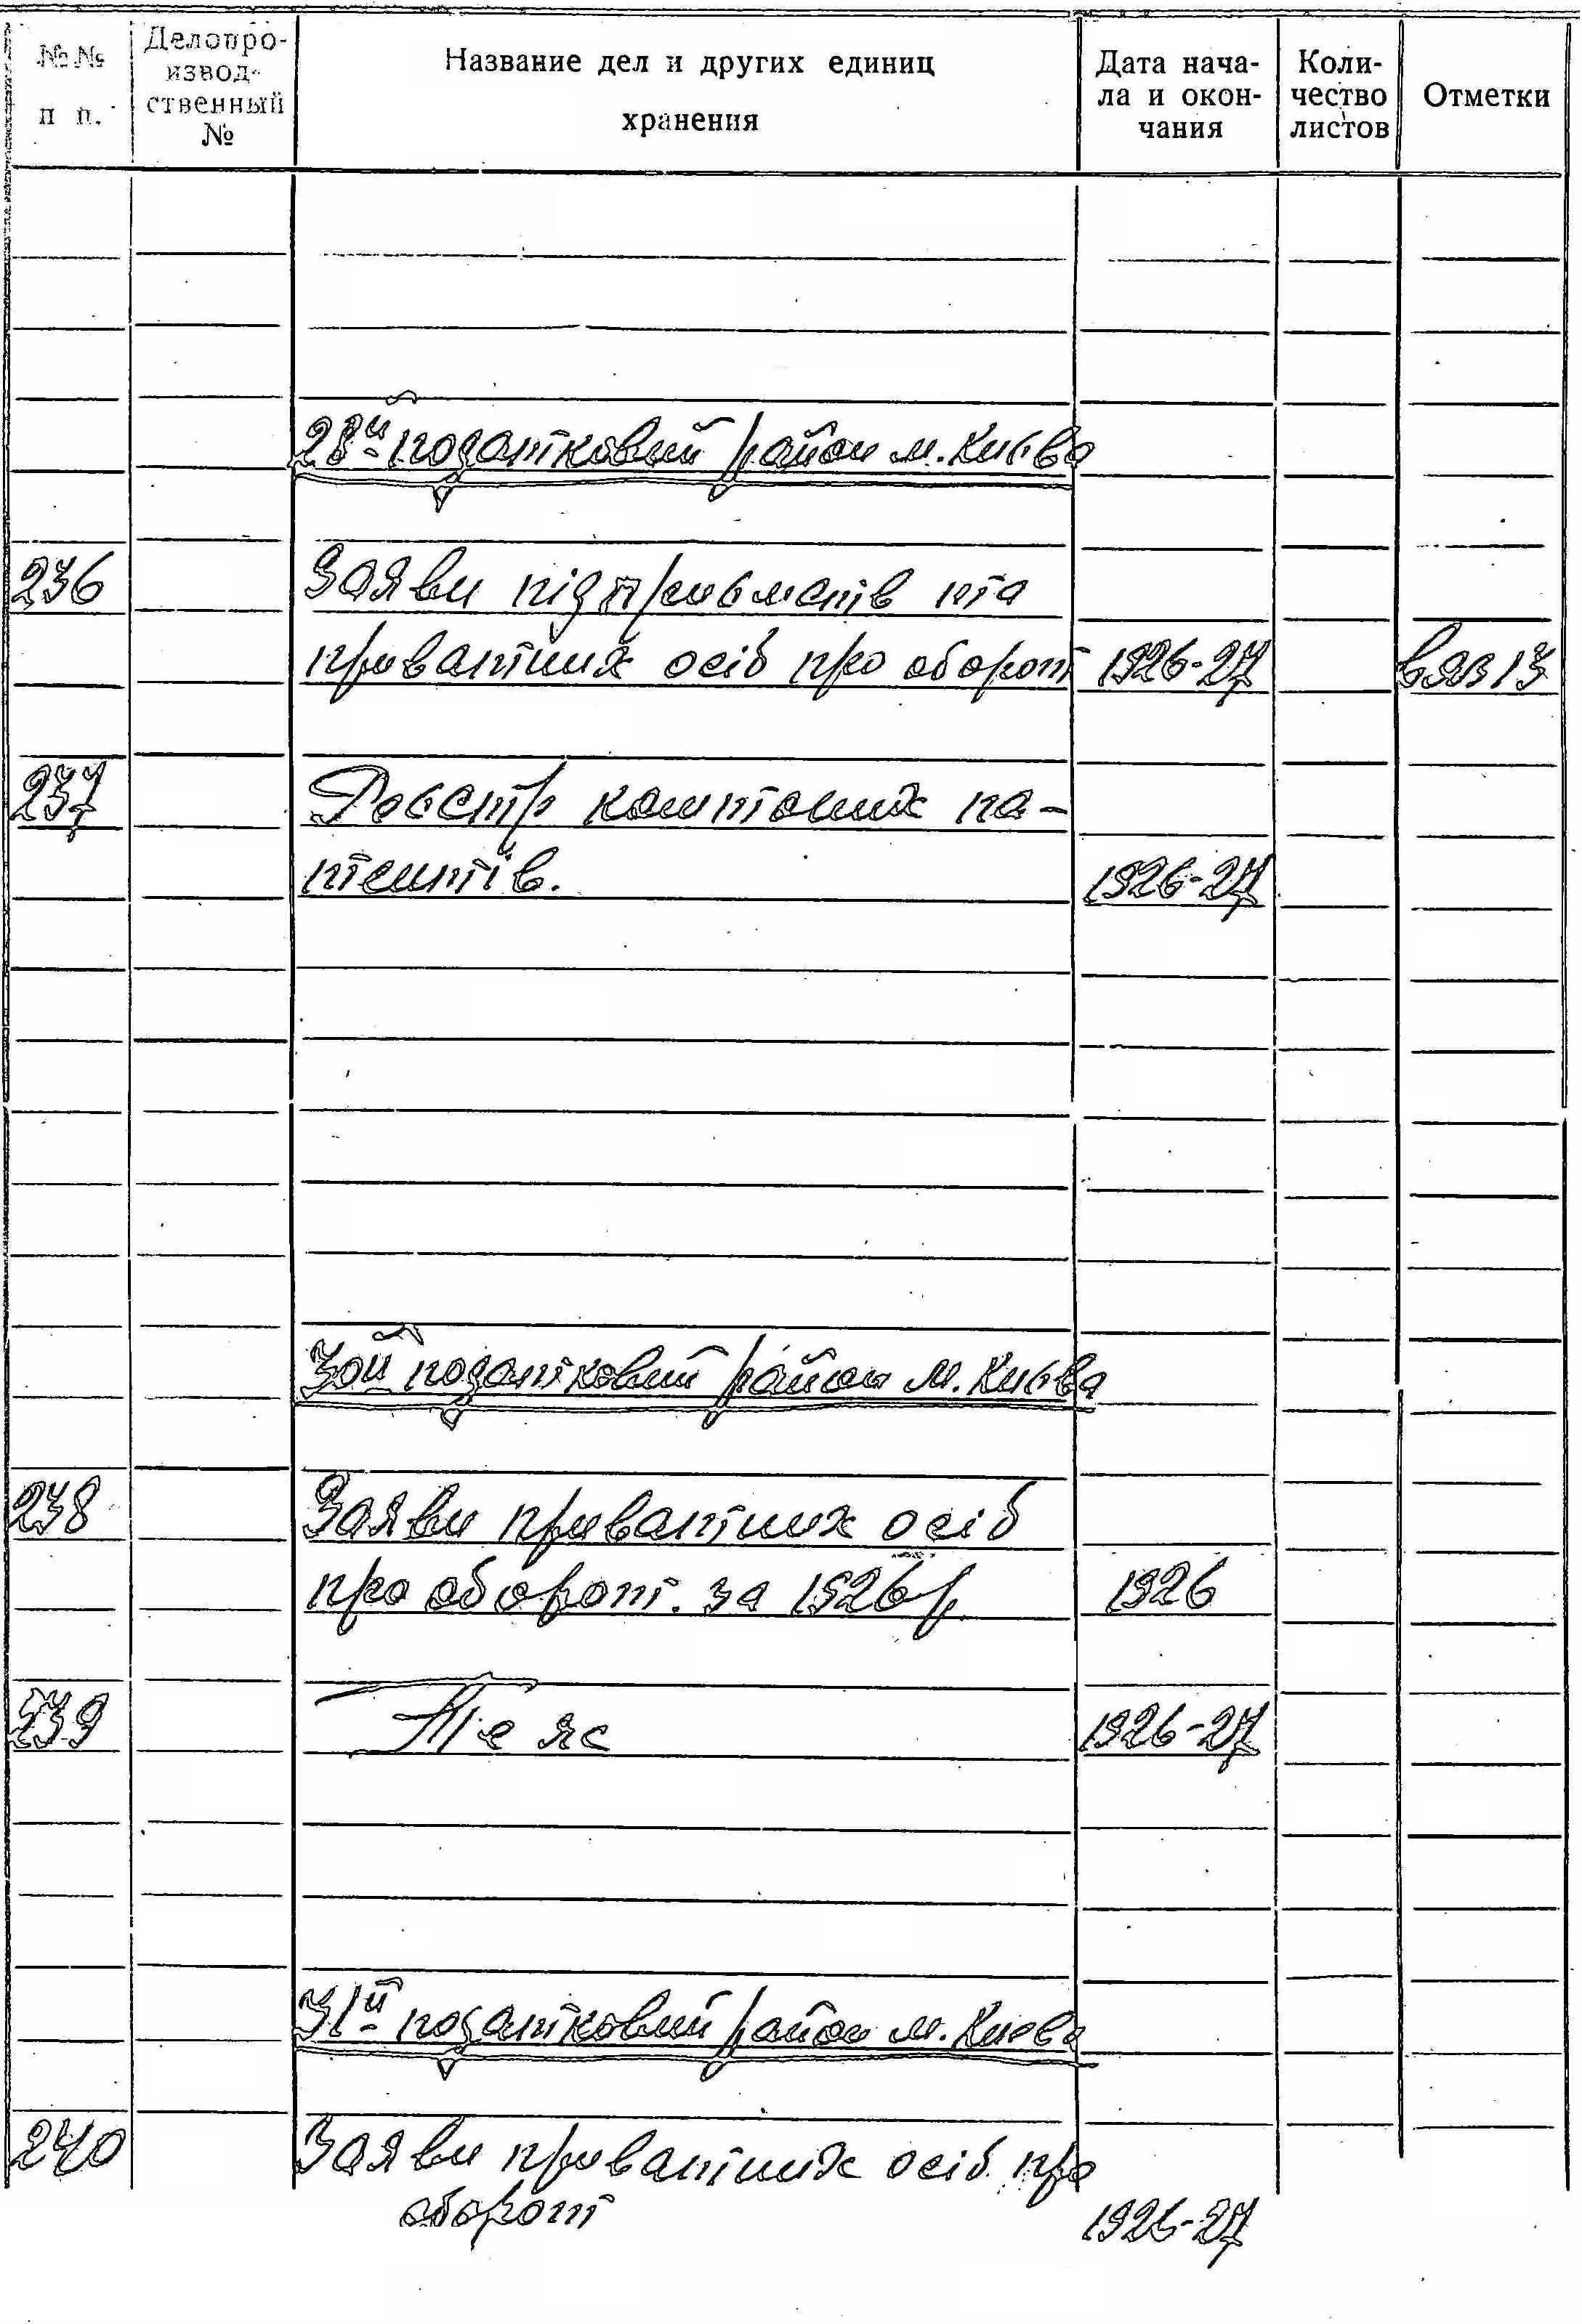 №№ п п.
Делопроизвод-ственный №
Название дел и других единиц хранения
Дата нача-ла и окон-чания
Коли-чество листов
Отметки
28й податковий район м. Києва
236 Заяви підприємств та
приватних осіб про оборот 1926-27 вяз 13
237 Реєстр коштових па-
тентів. 1926-27
30й податковий район м. Києва
238 Заяви приватних осіб
про оборот за 1926 р. 1926
239 Те ж 1926-27
31й податковий район м. Києва
240 Заяви приватних осіб про
оборот 1926-27